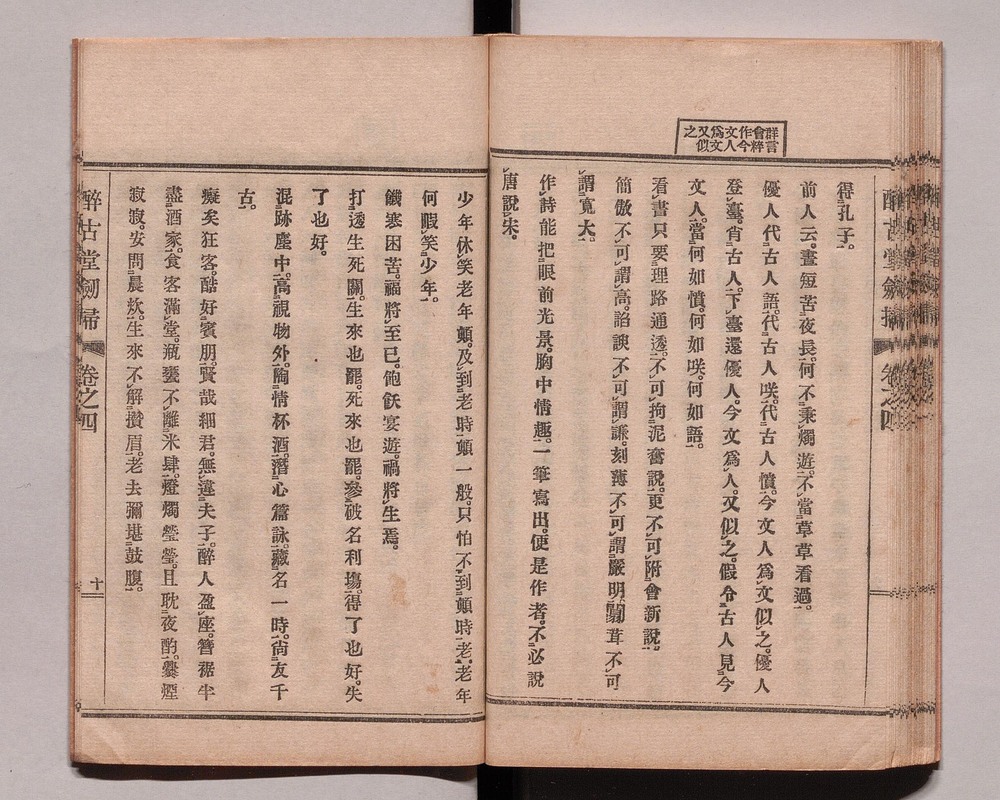 群言
會粹
作今
文人
爲文
又似
之
得孔子。
前人云。晝短苦夜長。何不秉燭遊。不當草草看過。
優人代古人語。代古人咲。代古人憤。今文人爲文似之。優人
登臺。肖古人。下臺還優人。今文爲人。又似之。假令古人見今
文人。當何如憤。何如咲。何如語。
看書只要理路通透。不可拘泥奮說。更不可附會新說。
簡傲不可謂高。諂諛不可謂謙。刻薄不可謂嚴明。闒茸不可
謂寬大。
作詩能把眼前光景。胸中情趣。一筆寫出。便是作者。不必說
唐說朱。
少年休笑老年顛。及到老時顛一般。只怕不到顛時老。老年
何暇笑少年。
饑寒困苦。福將至已。飽飫宴遊。禍將生焉。
打透生死關。生來也罷。死來也罷。參破名利塲。得了也好。失
了也好。
混跡塵中。高視物外。陶情杯酒。潛心篇詠。藏名一時。尙友千
古。
癡矣狂客。酷好賓朋。賢哉細君。無違夫子。醉人盈座。簪裾半
盡酒家。食客滿堂。瓶甕不離米肆。燈燭瑩瑩。且耽夜酌。爨煙
寂寂。安問晨炊。生來不解攢眉。老去彌堪鼓腹。
醉古堂劍掃
卷之四
十